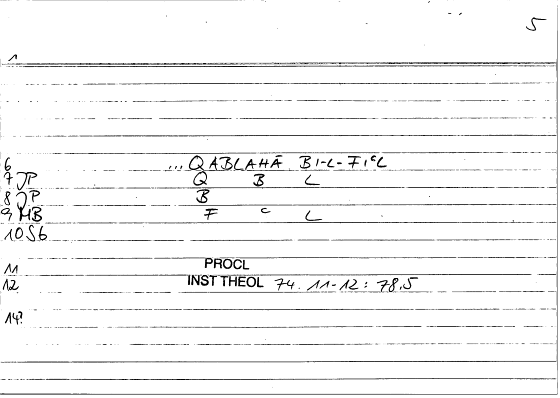 5
1
6 ... QABLAHĀ BI-L-FIᶜL
7 JP Q B L
8 JP B
9 MB F ᶜ L
10 Sb
11 PROCL
12 INST THEOL 74. 11-12 : 78.5
14?